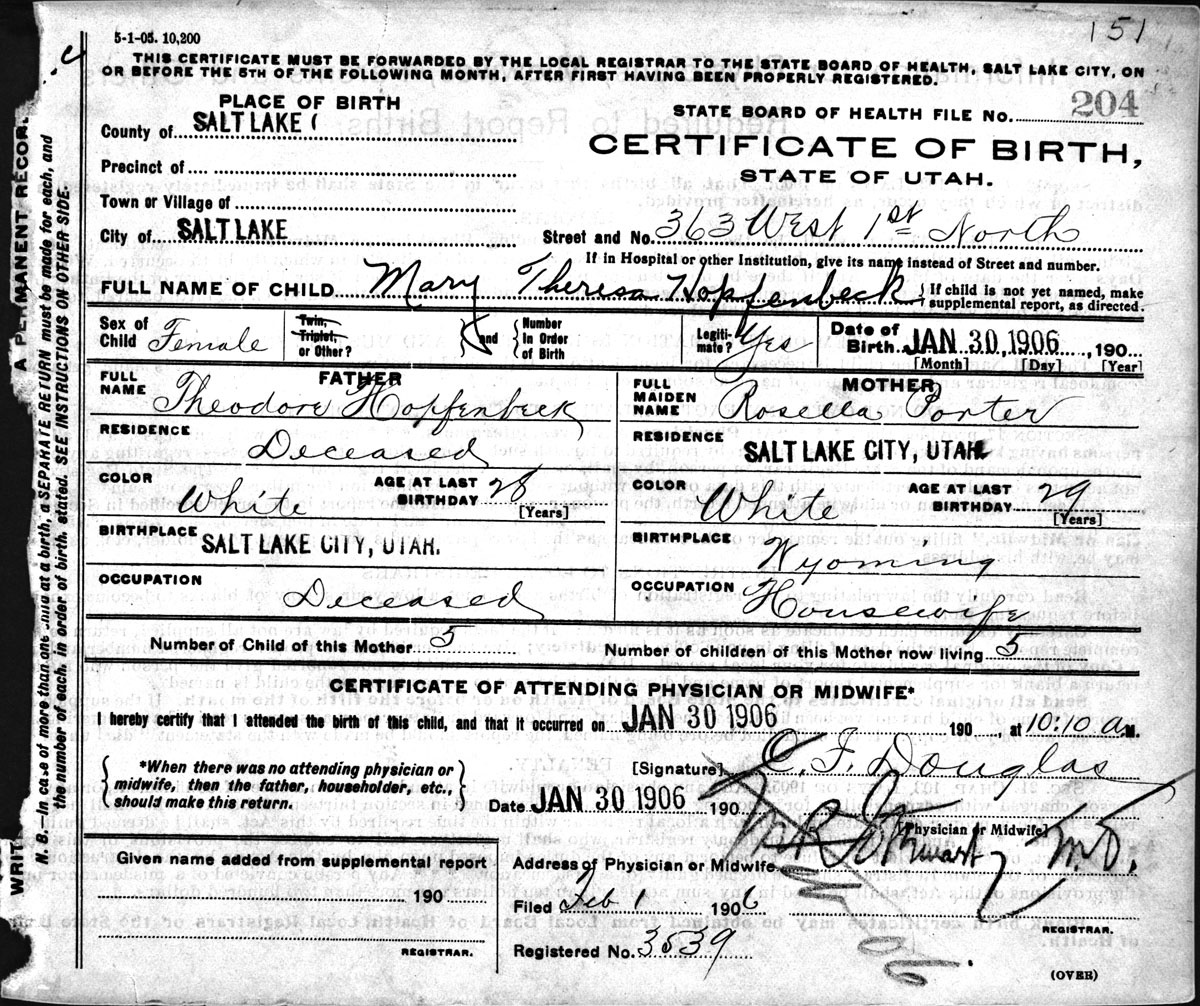 151
5-1-05. 10,200
THIS CERTIFICATE MUST BE FORWARDED BY THE LOCAL REGISTRAR TO THE STATE BOARD OF HEALTH, SALT LAKE CITY, ON
OR BEFORE THE 5TH OF THE FOLLOWING MONTH, AFTER FIRST HAVING BEEN PROPERLY REGISTERED.
PLACE OF BIRTH
STATE BOARD OF HEALTH FILE NO. 204
County of SALT LAKE
CERTIFICATE OF BIRTH,
Precinct of
STATE OF UTAH.
Town or Village of
City of SALT LAKE
Street and No. 363 West 1st North
If in Hospital or other Institution, give its name instead of Street and number.
FULL NAME OF CHILD Mary Theresa Hopfenbeck { If child is not yet named, make
supplemental report, as directed.
Sex of Child Female
Twin, Triplet, or Other? } and { Number In Order of Birth
Legiti- mate? Yes
Date of Birth JAN 30, 1906, 190
[Month] [Day] [Year]
FATHER
FULL NAME Theodore Hopfenbeck
MOTHER
FULL MAIDEN NAME Rosella Porter
RESIDENCE Deceased
RESIDENCE SALT LAKE CITY, UTAH.
COLOR White AGE AT LAST BIRTHDAY 28 [Years]
COLOR White AGE AT LAST BIRTHDAY 29 [Years]
BIRTHPLACE SALT LAKE CITY, UTAH.
BIRTHPLACE Wyoming
OCCUPATION Deceased
OCCUPATION Housewife
Number of Child of this Mother 5
Number of children of this Mother now living 5
CERTIFICATE OF ATTENDING PHYSICIAN OR MIDWIFE*
I hereby certify that I attended the birth of this child, and that it occurred on JAN 30 1906 190 , at 10:10 a M.
{ *When there was no attending physician or
midwife, then the father, householder, etc.,
should make this return. }
[Signature] C. F. Douglas
Date JAN 30 1906 190
[Physician or Midwife]
M.D.
Given name added from supplemental report
190
REGISTRAR.
Address of Physician or Midwife
Filed Feb 1 1906
REGISTRAR.
Registered No. 3539
(OVER)
WRIT
A PERMANENT RECOR
N. B. In case of more than one child at a birth, a SEPARATE RETURN must be made for each, and
the number of each, in order of birth, stated. SEE INSTRUCTIONS ON OTHER SIDE.